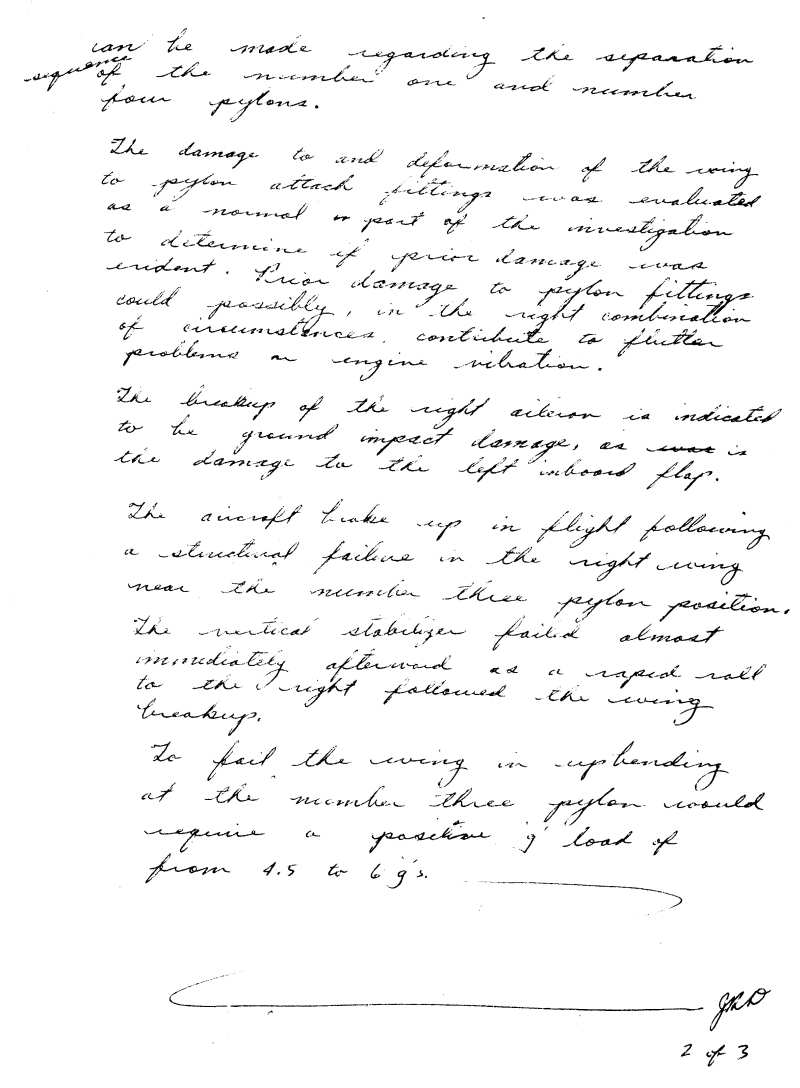 can be made regarding the separation
sequence of the number one and number
four pylons.
The damage to and deformation of the wing
to pylon attach fittings was evaluated
as a normal part of the investigation
to determine if prior damage was
evident. Prior damage to pylon fittings
could possibly, in the right combination
of circumstances, contribute to flutter
problems or engine vibration.
The breakup of the right aileron is indicated
to be ground impact damage, as was is
the damage to the left inboard flap.
The aircraft broke up in flight following
a structural failure in the right wing
near the number three pylon position.
The vertical stabilizer failed almost
immediately afterward as a rapid roll
to the right followed the wing
breakup.
To fail the wing in upbending
at the number three pylon would
require a positive 'g' load of
from 4.5 to 6 g's.
JRD
2 of 3